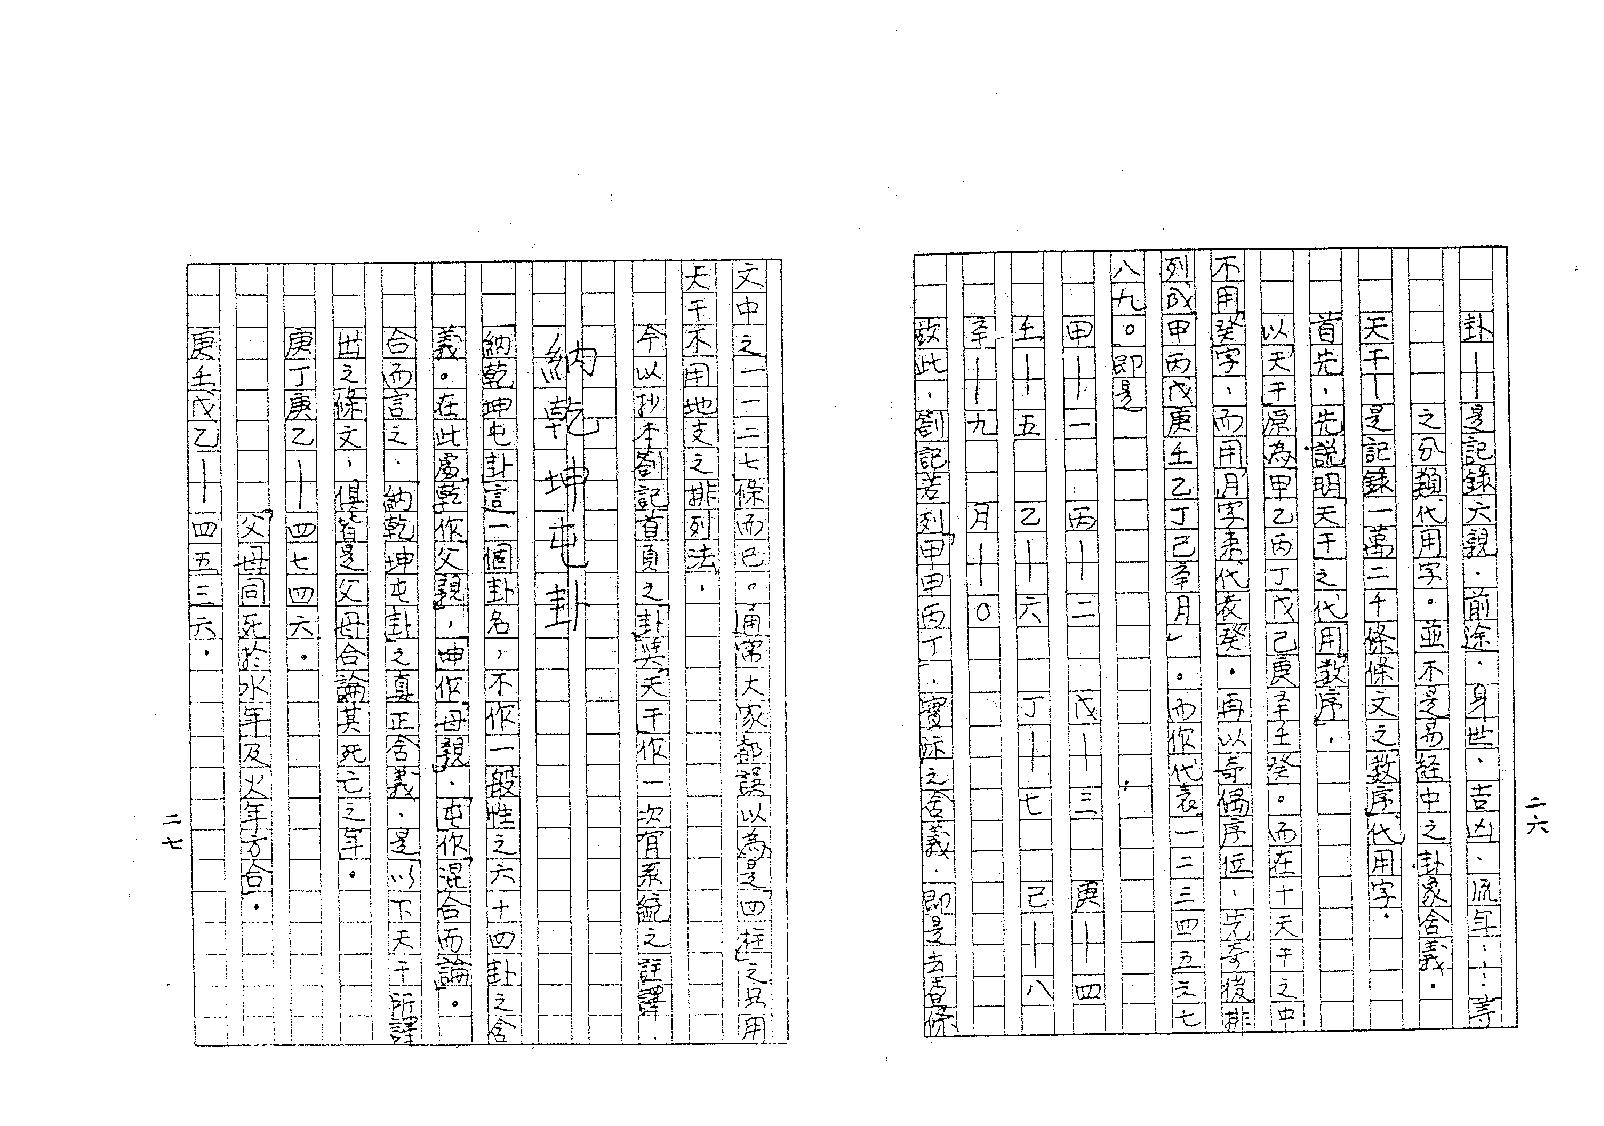 卦——是記錄六親．前途．身世．吉凶．流年……等
之分類代用字。並不是易経中之卦象含義．
天干—是記錄一萬二千條條文之数序代用字．
首先．先説明天干之代用数序．
以天干原為甲乙丙丁戊己庚辛壬癸。而在十天干之中
不用癸字，而用月字來代表癸．再以奇偶序位．先奇後排
列成甲丙戊庚壬乙丁己辛月」。而作代表一二三四五六七
八九０即是
甲——一　丙——二　戊——三　庚——四
壬——五　乙——六　丁——七　己——八
辛——九　月——０
故此．劉記若列甲甲丙丁．實際之含義．即是查條
二六
文中之一一二七條而已。通常大家都誤以為是四柱之只用
天干不用地支之排列法．
今以抄本劉記首頁之卦與天干作一次有系統之註譯．
納乾坤屯卦
納乾坤屯卦言一個卦名，不作一般性之六十四卦之含
義。在此處乾作父親，坤作母親．屯作混合而論。
合而言之．納乾坤屯卦之真正含義．是以下天干所譯
世之條文．俱皆是父母合論其死亡之年。
庚丁庚乙——四七四六．
父母同死於水年及火年方合．
庚壬戊乙——四五三六．
二七